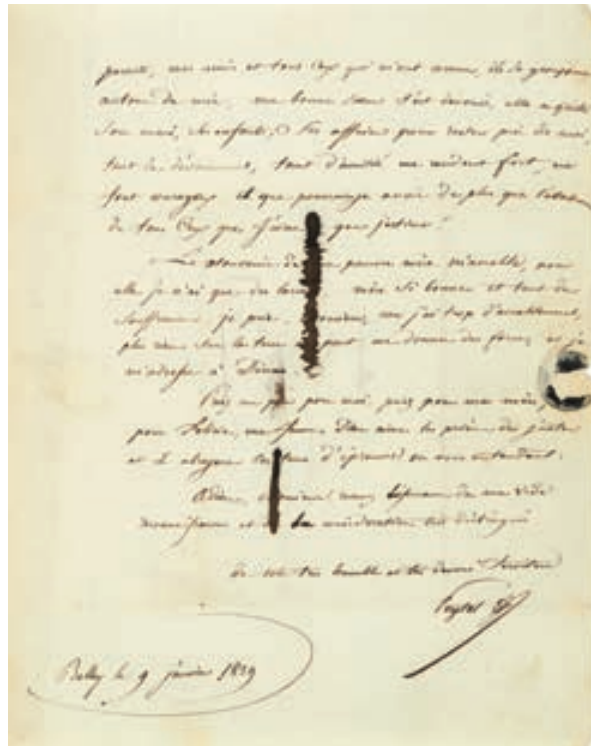 parents, mes amis et tous ceux qui m'ont connu, ils se groupent
autour de moi, ma bonne sœur s'est dévouée, elle a quitté
son mari, ses enfants, ses affaires pour rester près de moi,
tant de dévouement, tant d'amitié me rendent fort, me
font courageux et que pourrais-je avoir de plus que l'estime
de tous ceux que j'aime
Le souvenir de pauvre mère m'accable, pour
elle je n'ai que des mère si bonne et tant de
souffrances je puis car j'ai trop d'accablement,
plus rien sur la terre peut me donner des forces, et je
m'adresse à Dieu
Priez un peu pour moi, priez pour ma mère,
pour Félicie, ma femme Dieu aime les prières du juste
et il abrégera d'épreuves en vous entendant.
Adieu, de ma vive
reconnaissance et considération très distinguée
de votre très humble et très dévoué Serviteur
Peytel
Belley le 9 janvier 1839